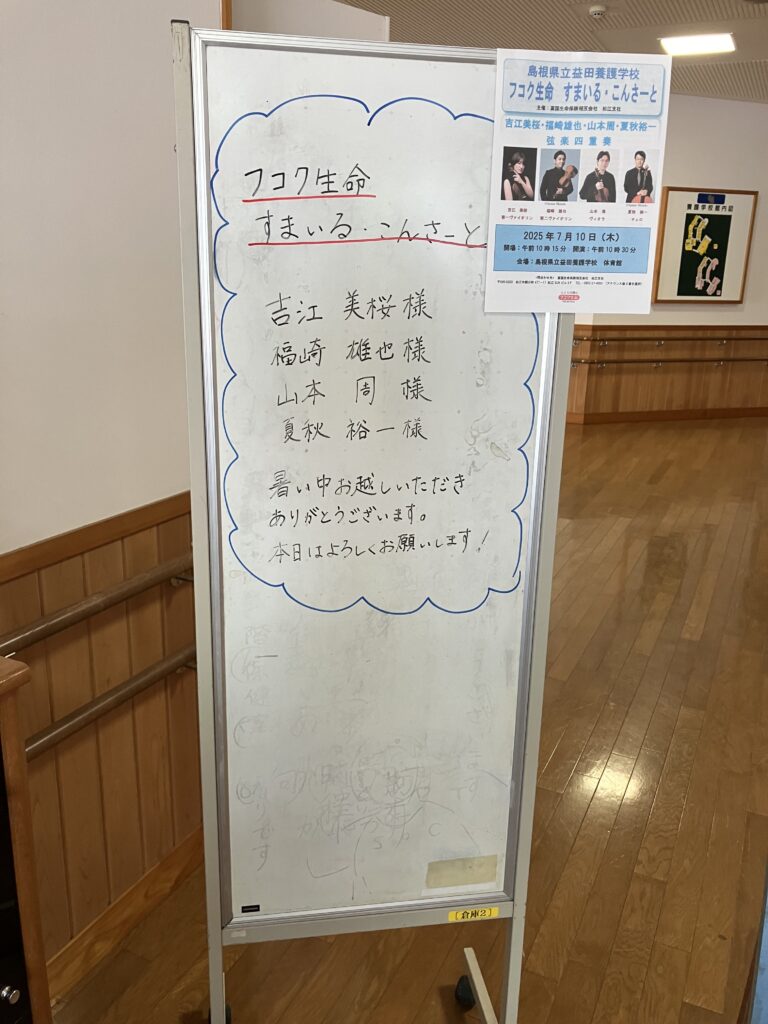 フコク生命
すまいる・こんさーと
吉江 美桜様
福崎 雄也様
山本 周 様
夏秋 裕一様
暑い中お越しいただき
ありがとうございます。
本日はよろしくお願いします!
[倉庫2]
島根県立益田養護学校
フコク生命 すまいる・こんさーと
主催:富国生命保険相互会社 松江支社
吉江美桜・福崎雄也・山本周・夏秋裕一
弦楽四重奏
吉江 美桜 福崎 雄也 山本 周 夏秋 裕一
第一ヴァイオリン 第二ヴァイオリン ヴィオラ チェロ
2025年7月10日(木)
開場:午前10時15分 開演:午前10時30分
会場:島根県立益田養護学校 体育館
養護学校館内図